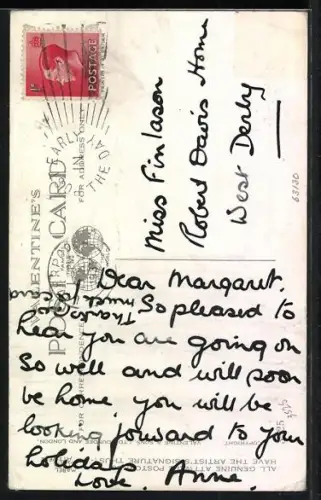 Miss Finlason
Robert Davis Home
West Derby
Dear Margaret.
Thanks for card
much
So pleased to
hear you are going on
so well and will soon
be home. you will be
looking forward to your
holidays.
Love. Anne.
POSTAGE
EARLY
IN
THE DAY
VALENTINE'S
POST CARD
FOR ADDRESS ONLY
63/30
ALL GENUINE
HAVE THE ARTIST'S SIGNATURE
COPYRIGHT
VALENTINE & SONS, LTD. DUNDEE AND LONDON.